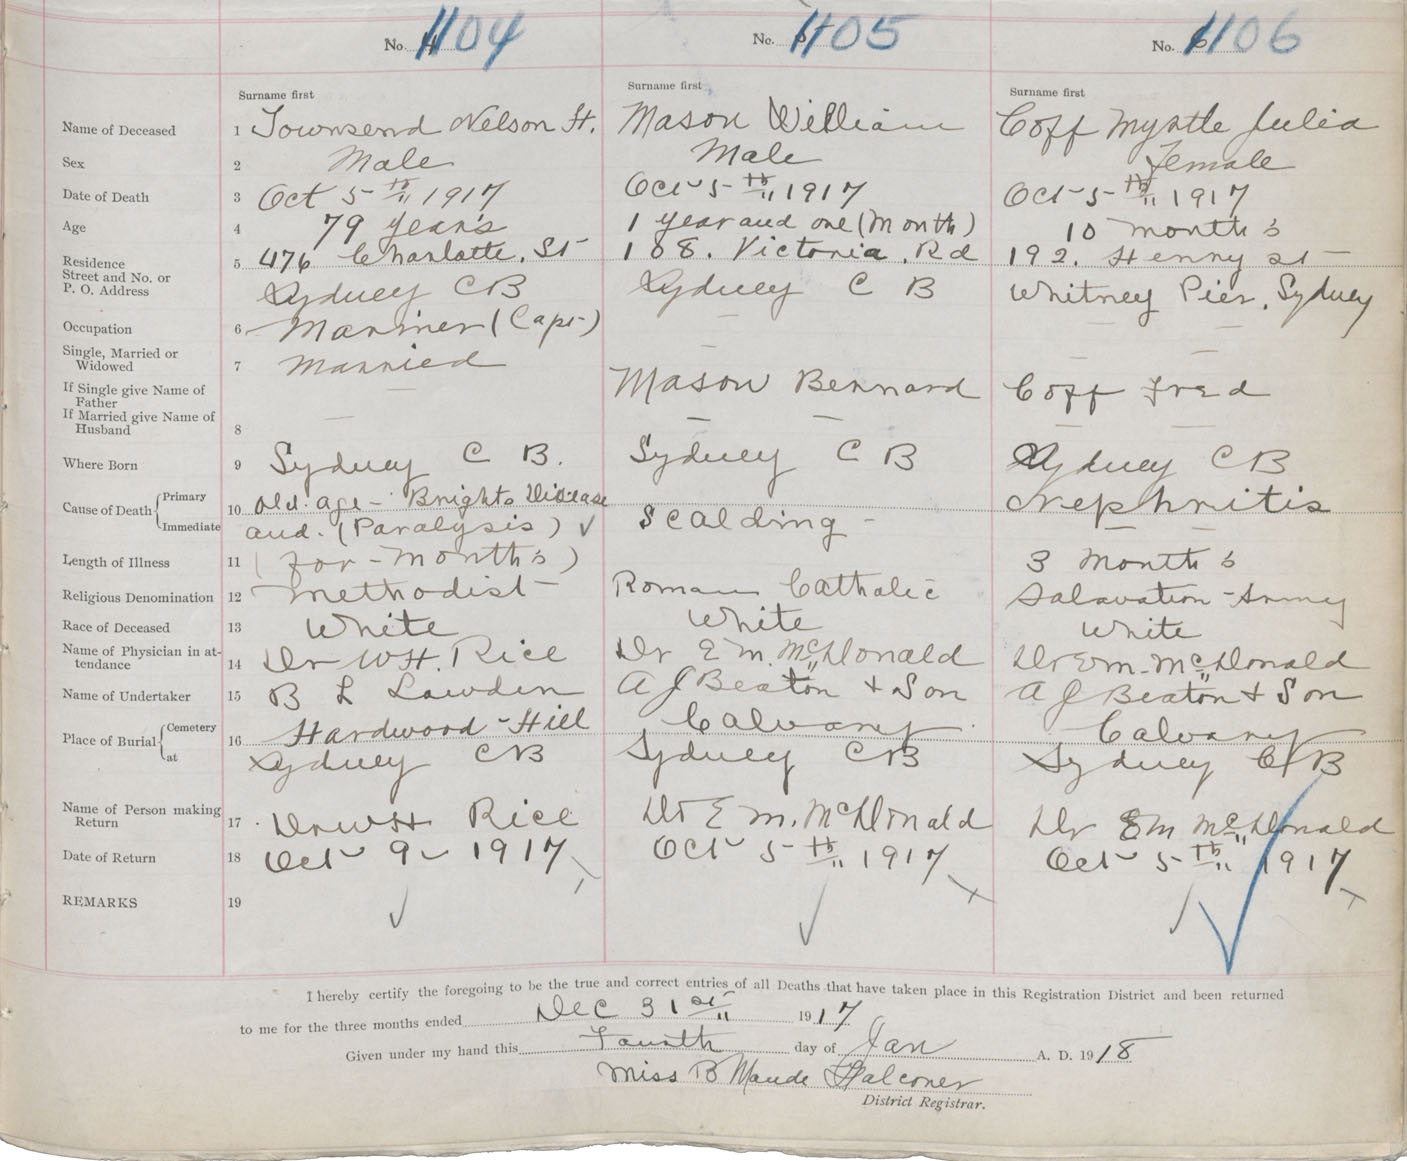 No. 1104 No. 1105 No. 1106
Surname first Surname first Surname first
Name of Deceased 1 Townsend Nelson H. Mason William Coff Myrtle Julia
Sex 2 Male Male Female
Date of Death 3 Oct 5th 1917 Oct 5th 1917 Oct 5th 1917
Age 4 79 years 1 year and one (Month) 10 month's
Residence 5 476 Charlotte. St 188. Victoria. Rd 192. Henry st
Street and No. or
P. O. Address Sydney CB Sydney C B Whitney Pier. Sydney
Occupation 6 Mariner (Capt) — —
Single, Married or
Widowed 7 Married — —
If Single give Name of
Father — Mason Bernard Coff Fred
If Married give Name of
Husband 8 — — —
Where Born 9 Sydney C B. Sydney C B Sydney CB
Cause of Death { Primary 10 old. age - Brights Disease Scalding - Nephritis
Immediate and. (Paralysis) ✓
Length of Illness 11 (for - months) 3 Month's
Religious Denomination 12 Methodist Roman Catholic Salavation - Army
Race of Deceased 13 White White White
Name of Physician in at-
tendance 14 Dr W.H. Rice Dr E M. McDonald Dr E M. McDonald
Name of Undertaker 15 B L Lowden A J Beaton & Son A J Beaton & Son
Place of Burial { Cemetery 16 Hardwood - Hill Calvary Calvary
at Sydney CB Sydney CB Sydney CB
Name of Person making
Return 17 Dr W H Rice Dr E M. McDonald Dr E M McDonald
Date of Return 18 Oct 9 1917 Oct 5th 1917 Oct 5th 1917
REMARKS 19
I hereby certify the foregoing to be the true and correct entries of all Deaths that have taken place in this Registration District and been returned
to me for the three months ended Dec 31st 1917
Given under my hand this Fourth day of Jan A. D. 1918
Miss B Maude Falconer
District Registrar.